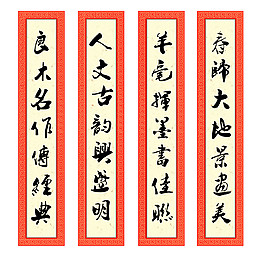 春歸大地景美
羊毫揮墨書佳聯
人文古韻興盛明
良木名作傳經典